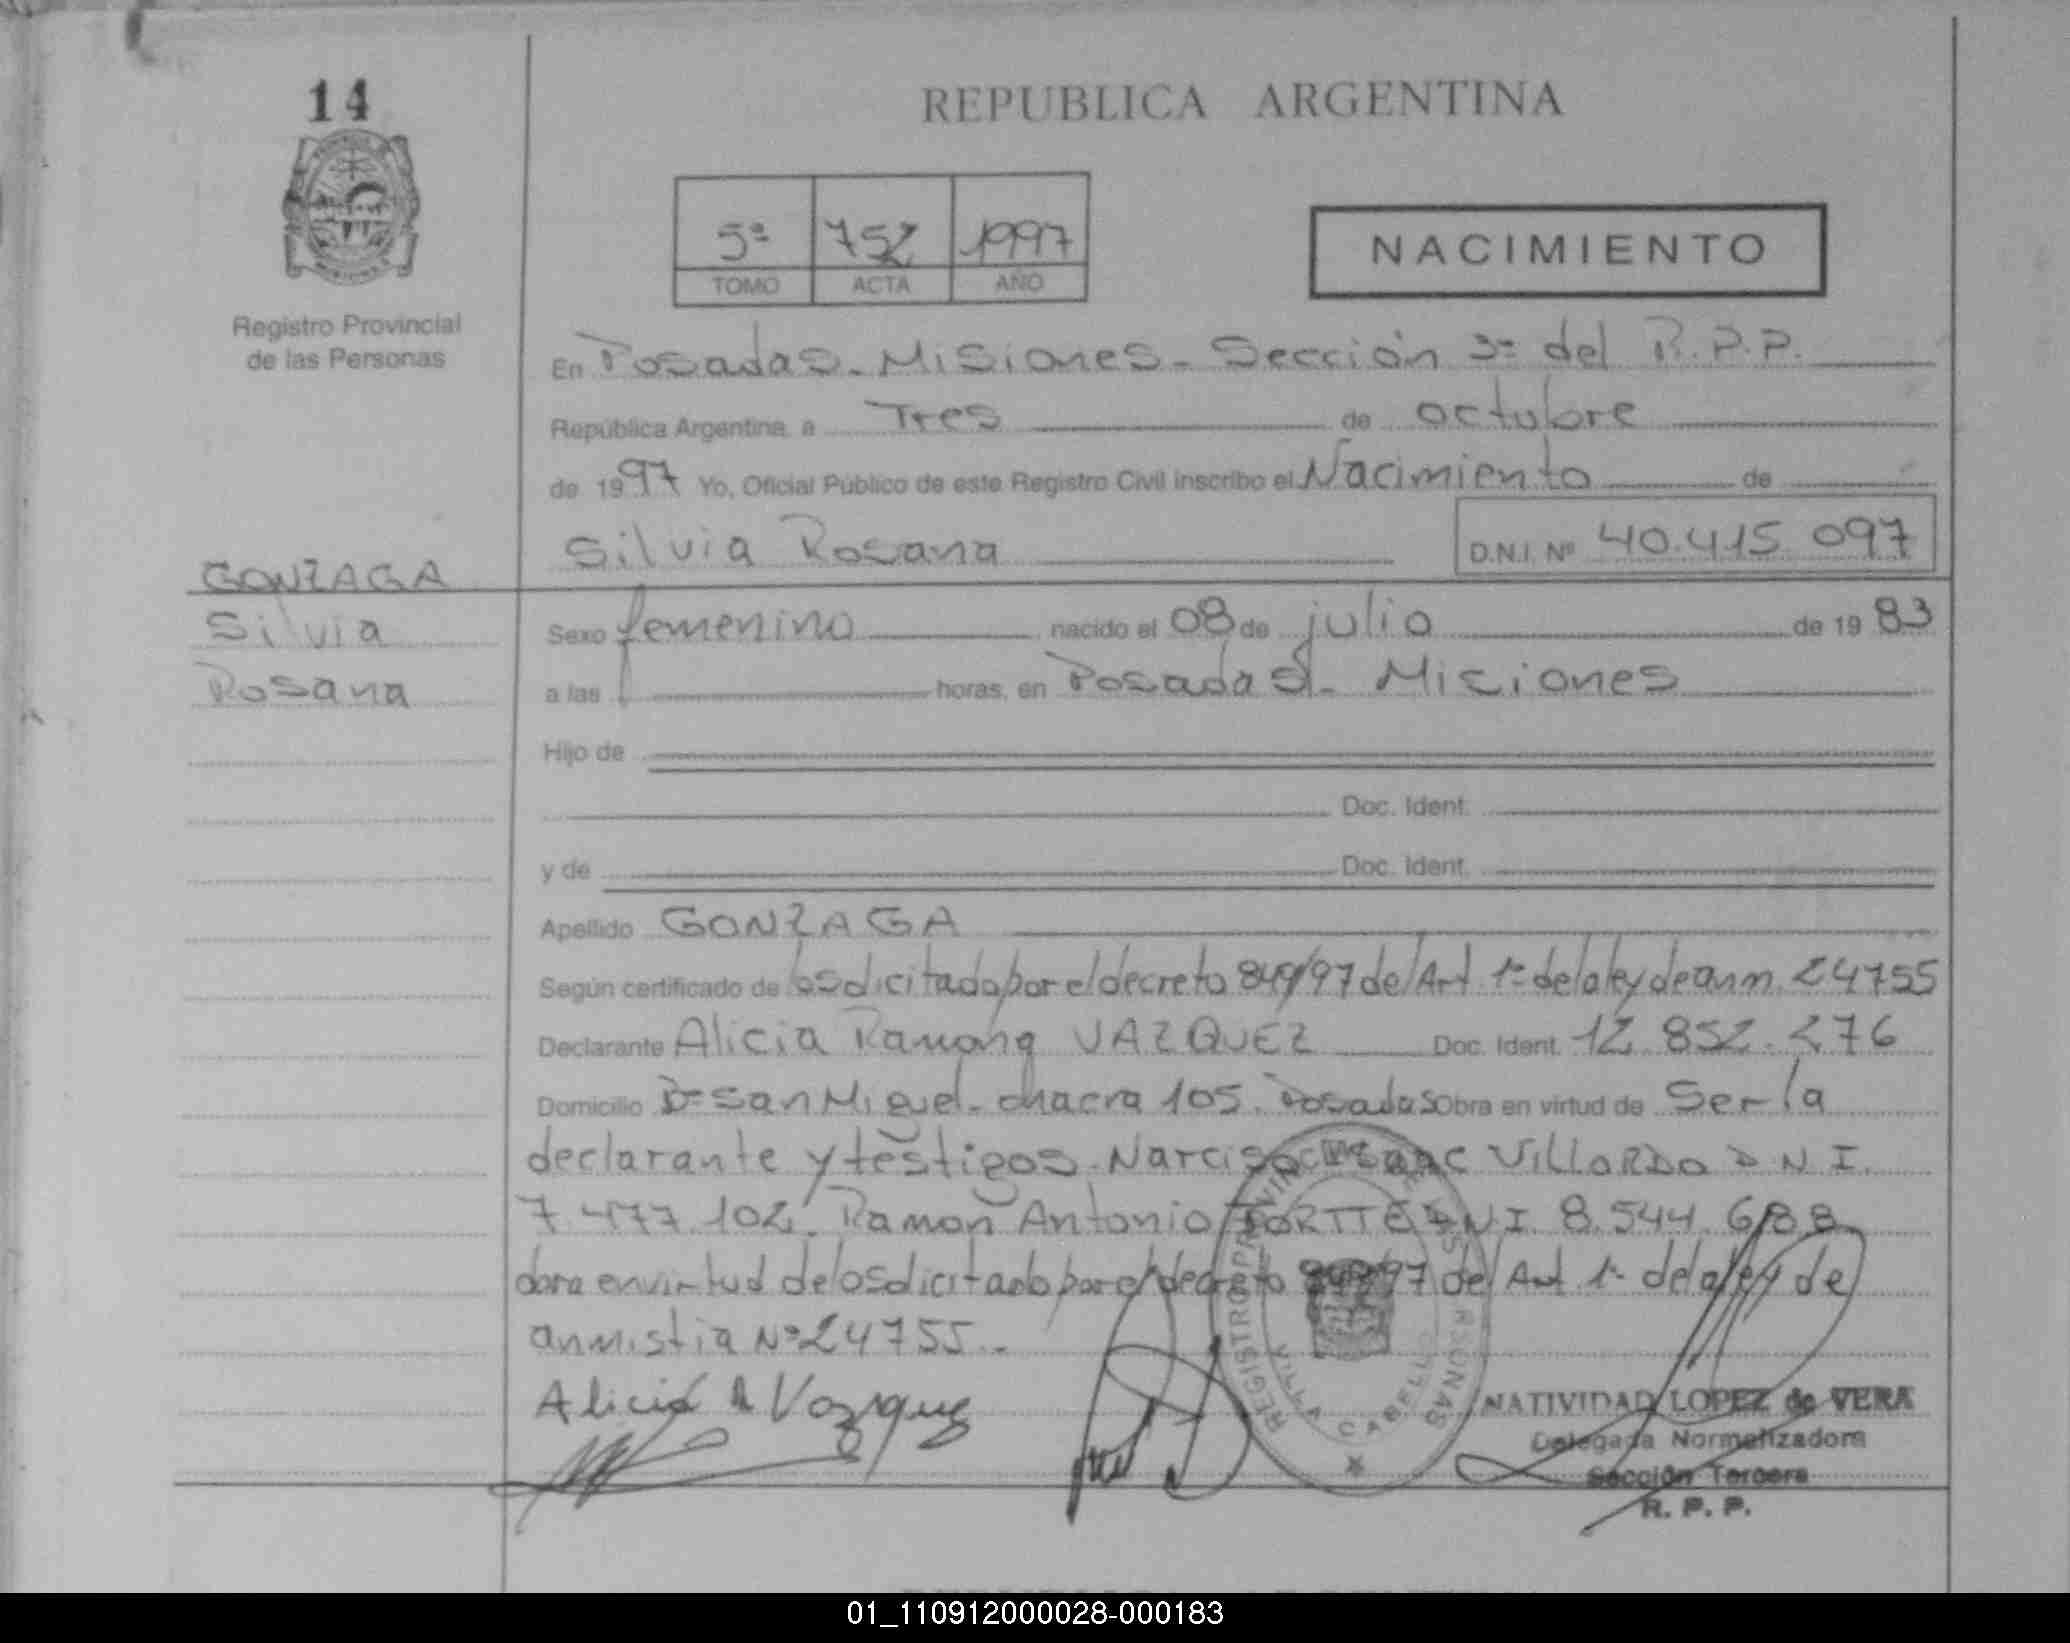 14
REPUBLICA ARGENTINA
5ª 752 1997
TOMO ACTA AÑO
NACIMIENTO
Registro Provincial
de las Personas
En Posadas - Misiones - Sección 3ª del R.P.P.
República Argentina, a Tres de octubre
de 1997 Yo, Oficial Público de este Registro Civil inscribo el Nacimiento de
Silvia Rosana D.N.I. Nº 40.415.097
GONZAGA
Silvia
Rosana
Sexo femenino nacido el 08 de julio de 1983
a las horas, en Posadas - Misiones
Hijo de
Doc. Ident.
y de Doc. Ident.
Apellido GONZAGA
Según certificado de lo solicitado por el decreto 849/97 del Art 1º de la ley de anm. 24755
Declarante Alicia Ramona VAZQUEZ Doc. Ident. 12.852.276
Domicilio Bº San Miguel - chacra 105. Posadas Obra en virtud de Ser la
declarante y testigos. Narciso VILLORDO D N I.
7.477.102. Ramon Antonio D N I. 8.544.688
obra en virtud de lo solicitado por el decreto 849/97 del Art 1º de la ley de
anmistia Nº 24755.-
Alicia R Vazquez
REGISTRO PROVINCIAL DE LAS PERSONAS
VILLA CABELLO
NATIVIDAD LOPEZ de VERA
Delegada Normalizadora
Sección Tercera
R. P. P.
01_110912000028-000183